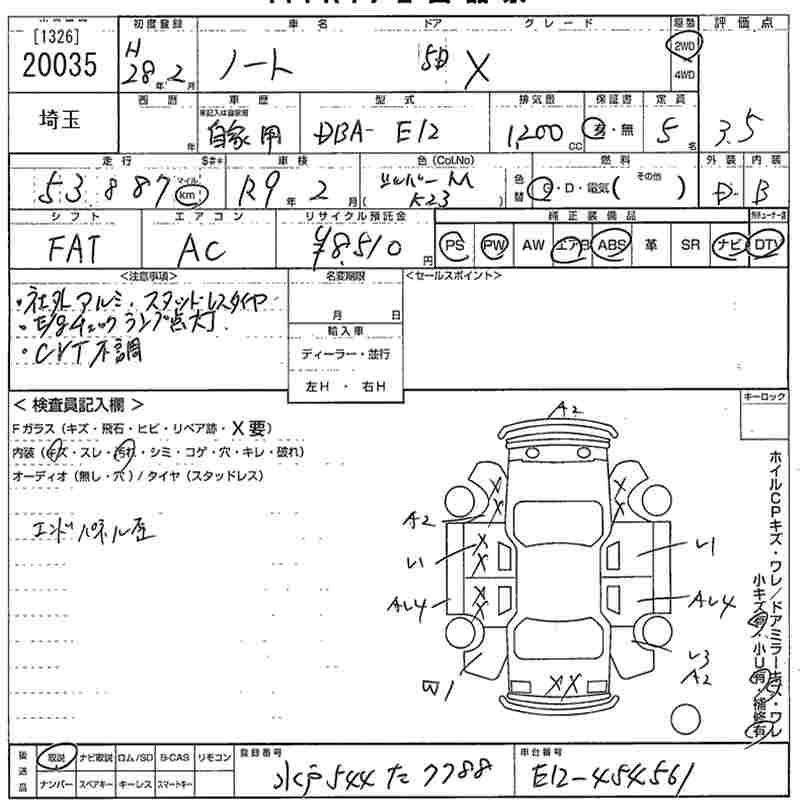 初度登録 車名 ドア グレード 駆動 評価点
[1326]
20035
H28年2月 ノート 5D X 2WD
4WD
埼玉
西暦 車歴 型式 排気量 保証書 定員
年 未記入は自家用 自家用 DBA-E12 1,200CC 有・無 5名 3.5
走行 $#* 車検 色(Col.No) 燃料 外装 内装
53,887 マイル km R9年2月 シルバーM K23 色替 G・D・電気(その他 ) D B
シフト エアコン リサイクル預託金 純正装備品
FAT AC ¥8,510円 PS PW AW エアB ABS 革 SR ナビ DTV
<注意事項> 名変期限 <セールスポイント>
・社外アルミ、スタットレスタイヤ
・E/gチェックランプ点灯
・CVT不調
月 日
輸入車
ディーラー・並行
左H ・ 右H
< 検査員記入欄 > キーロック
Fガラス(キズ・飛石・ヒビ・リペア跡・X要)
内装(キズ・スレ・汚れ・シミ・コゲ・穴・キレ・破れ)
オーディオ(無し・穴)/タイヤ(スタッドレス)
エンドパネル歪
A2
X X
X X
A2
X
X
U1 U1
X
X
AU4 AU4
U3
A2
W1
XX
ホイルCPキズ・ワレ/ドアミラーキズ・ワレ
小キズ有・小U有・補修有
後送品 取説 ナビ取説 ロム/SD B-CAS リモコン 登録番号 車台番号
ナンバー スペアキー キーレス スマートキー 水戸544た7788 E12-454561